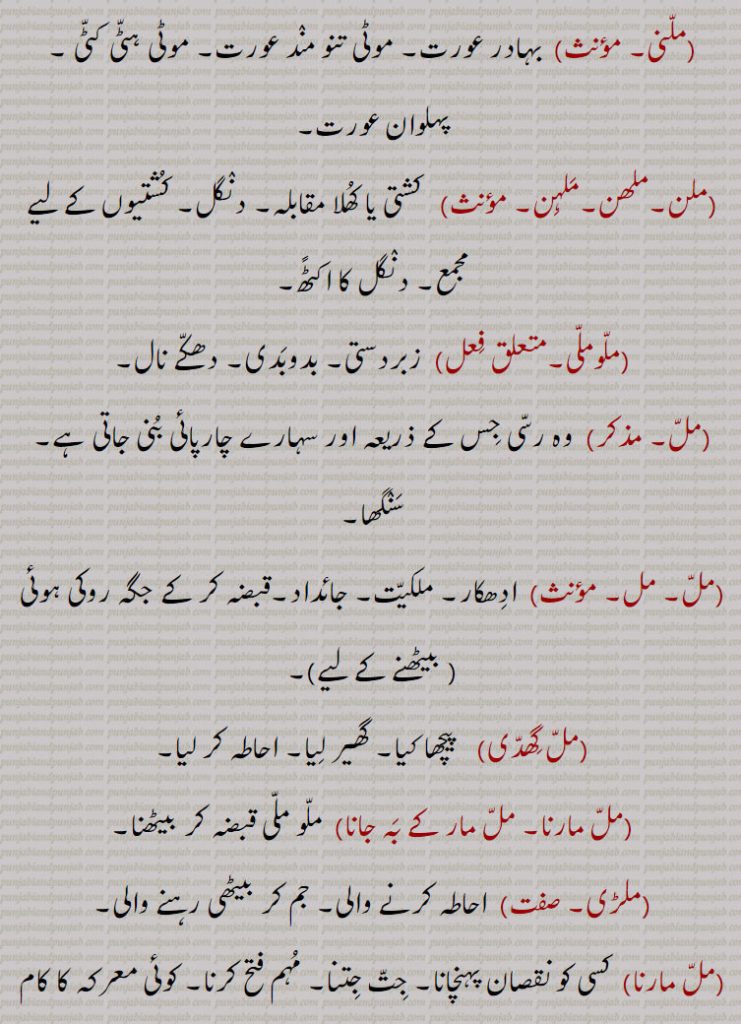 (ملّنی۔ مؤنث) بہادر عورت۔ موٹی تنو منْد عورت۔ موٹی ہٹّی کٹّی ۔
پہلوان عورت۔
(ملن۔ملھن۔مَلہِن۔ مؤنث) کشتی یا کھُلا مقابلہ۔ دنْگل۔ کُشتیوں کے لیے
مجمع۔ دنْگل کا اکٹھّ۔
(ملّوملّی۔متعلق فِعل) زبردستی۔ بدوبَدی۔ دھکّے نال۔
(ملّ۔ مذکر) وہ رسّی جِس کے ذریعہ اور سہارے چارپائی بُنی جاتی ہے۔
سَنْگھا۔
(ملّ۔ مل۔ مؤنث) ادِھکار۔ ملکیّت۔ جائداد۔قبضہ کر کے جگہ روکی ہوئی
( بیٹھنے کے لیے)۔
(ملّ گِھدّی) پیچھا کیا۔ گھیر لِیا۔ احاطہ کر لیا۔
(ملّ مارنا۔ ملّ مار کے بَہ جانا) ملّو ملّی قبضہ کر بیٹھنا۔
(ملڑی۔ صفت) احاطہ کرنے والی۔ جم کر بیٹھی رہنے والی۔
(ملّ مارنا) کسی کو نقصان پہنچانا۔ جِتّ جِتنا۔ مُہم فتح کرنا۔ کوئی معرکہ کا کام
punjabiandpunjab.com